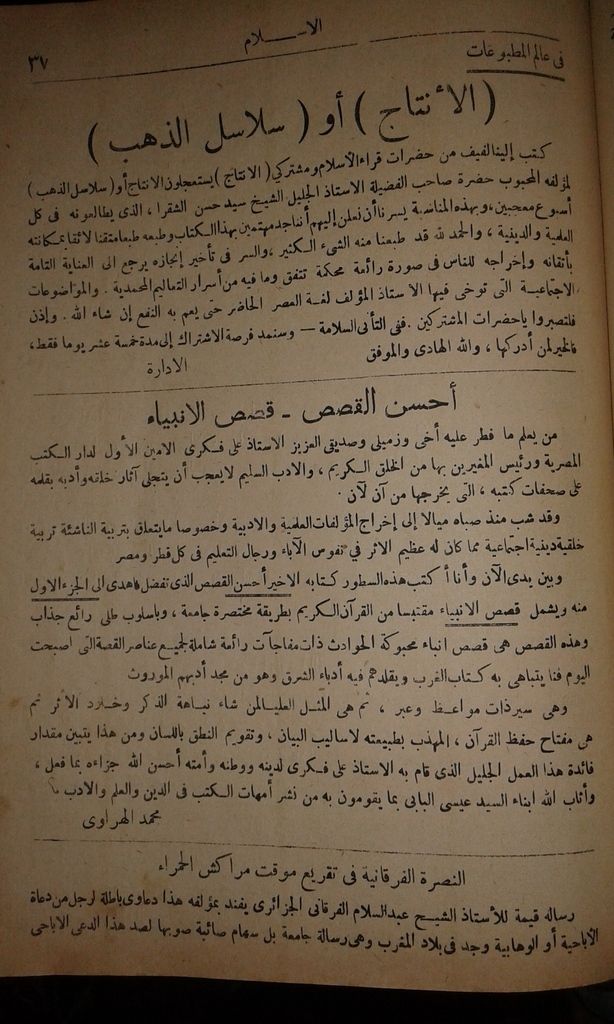 الاســـلام
٣٧
فى عالم المطبوعات
( الأنتاج ) أو ( سلاسل الذهب )
كتب إلينا لفيف من حضرات قراء الأسلام ومشتركى ( الانتاج ) يستعجلون الانتاج أو ( سلاسل الذهب )
لمؤلفه المحبوب حضرة صاحب الفضيلة الاستاذ الجليل الشيخ سيد حسن الشقرا ، الذى يطالعونه فى كل
أسبوع معجبين ، وبهذه المناسبة يسرنا أن نعلن إليهم أننا جد مهتمين بهذا الكتاب وطبعه طبعا متقنا لائقا بمكانته
العلمية والدينية ، والحمد لله قد طبعنا منه الشىء الكثير ، والسر فى تأخير إنجازه يرجع الى العناية التامة
بأتقانه وإخراجه للناس فى صورة رائعة محكمة تتفق وما فيه من أسرار التعاليم المحمدية . والموضوعات
الاجتماعية التى توخى فيها الاستاذ المؤلف لغة العصر الحاضر حتى يعم به النفع إن شاء الله . وإذن
فلتصبروا ياحضرات المشتركين . ففى التأنى السلامة — وسنمد فرصة الاشتراك إلى مدة خمسة عشر يوما فقط ،
فالخير لمن أدركها ، والله الهادى والموفق
الادارة
أحسن القصص ــ قصص الانبياء
من يعلم ما فطر عليه أخى وزميلى وصديقى العزيز الاستاذ على فكرى الامين الأول لدار الكتب
المصرية ورئيس المغيرين بها من الخلق الكريم ، والادب السليم لايعجب أن يتجلى آثار خلقه وأدبه بقلمه
على صحفات كتبه ، التى يخرجها من آن لآن .
وقد شب منذ صباه ميالا إلى إخراج المؤلفات العلمية والادبية وخصوصا مايتعلق بتربية الناشئة تربية
خلقية دينية اجتماعية مما كان له عظيم الاثر فى نفوس الآباء ورجال التعليم فى كل قطر ومصر
وبين يدى الآن وأنا أكتب هذه السطور كتابه الاخير أحسن القصص الذى تفضل فاهدى الى الجزء الاول
منه ويشمل قصص الانبياء مقتبسا من القرآن الكريم بطريقة مختصرة جامعة ، وباسلوب طلى رائع جذاب
وهذه القصص هى قصص انباء محبوكة الحوادث ذات مفاجآت رائعة شاملة لجميع عناصر القصة التى اصبحت
اليوم فنا يتباهى به كتاب الغرب ويقلدهم فيه أدباء الشرق وهو من مجد أدبهم الموروث
وهى سير ذات مواعـظ وعبر ، ثم هى المثل العليا لمن شاء نباهة الذكر وخلود الأثر ثم
هى مفتاح حفظ القرآن ، المهذب بطبيعته لاساليب البيان ، وتقويم النطق باللسان ومن هذا يتبين مقدار
فائدة هذا العمل الجليل الذى قام به الاستاذ على فكرى لدينه ووطنه وأمته أحسن الله جزاءه بما فعل ،
وأثاب الله ابناء السيد عيسى البابى بما يقومون به من نشر أمهات الكتب فى الدين والعلم والادب
محمد الهراوى
النصرة الفرقانية فى تقريع موقت مراكش الحمراء
رساله قيمة للأستاذ الشيخ عبدالسلام الفرقانى الجزائرى يفند بمؤلفه هذا دعاوى باطلة لرجل من دعاة
الأباحية أو الوهابية وجد فى بلاد المغرب وهى رسالة جامعة بل سهام صائبة صوبها لصد هذا الدعى الاباحى